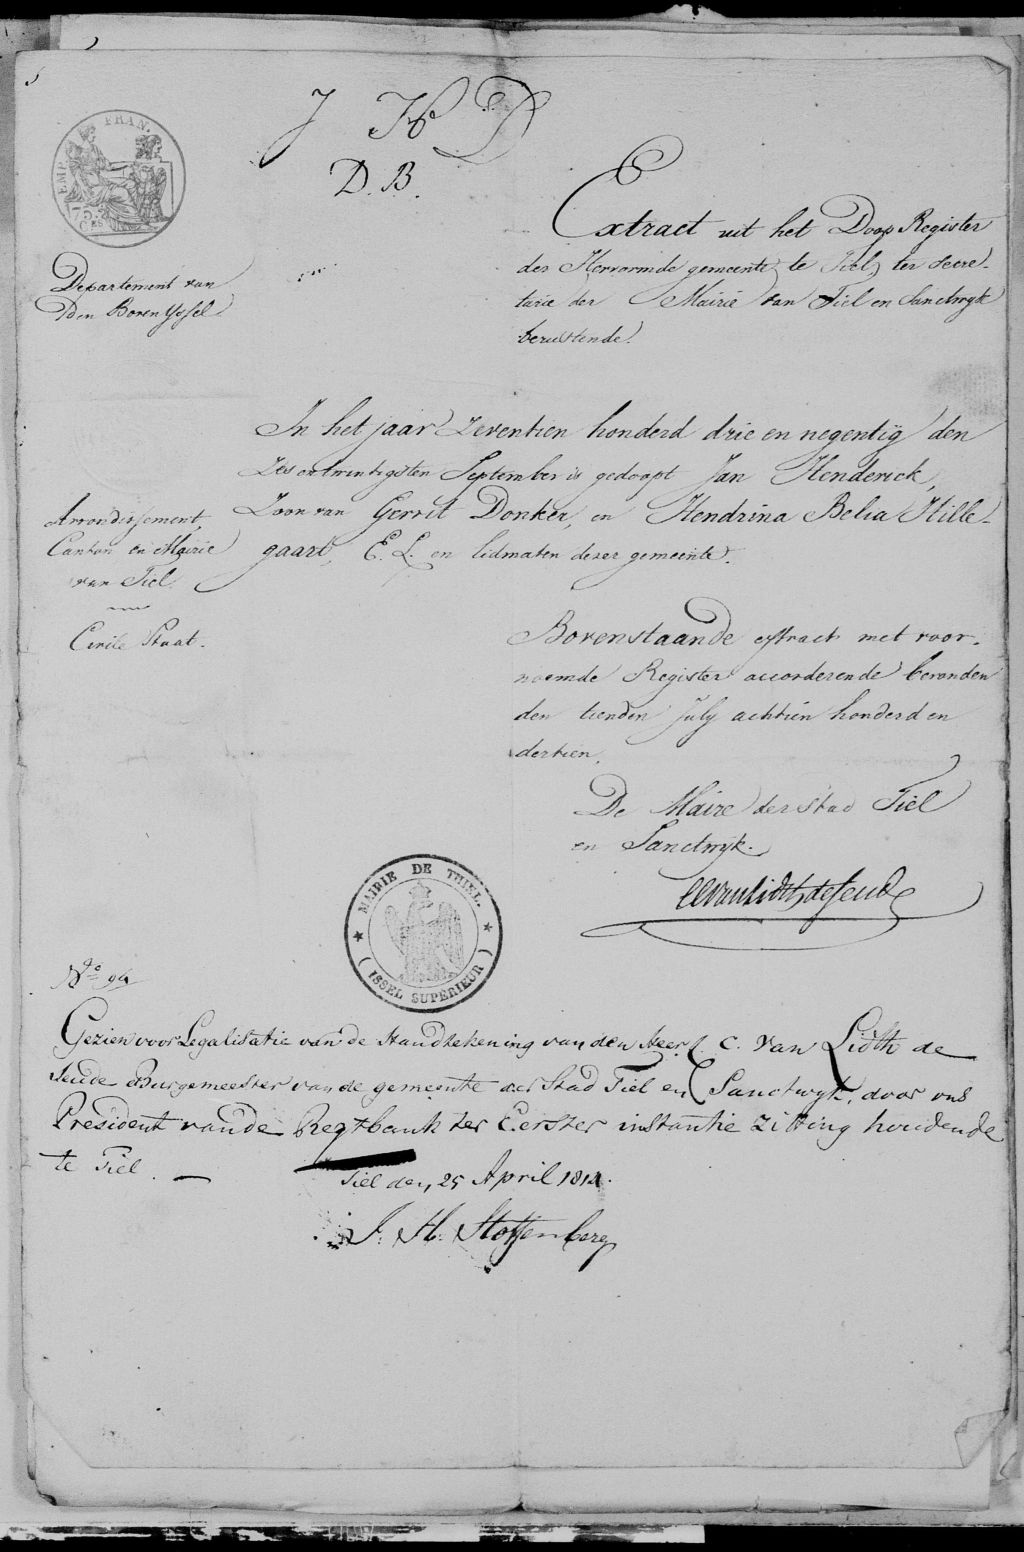 J H D
D. B.
EMP. FRAN.
75
Ces
Extract uit het Doop Register
der Hervormde gemeente te Tiel, ter Secre-
tarie der Mairie van Tiel en Sandwyk
berustende.
Departement van
den Boven Yssel
In het jaar Zeventien honderd drie en negentig den
Zes en twintigsten September is gedoopt Jan Henderick,
Zoon van Gerrit Donker, en Hendrina Belia Hille-
gaart, E. L. en lidmaten dezer gemeente.
Arrondissement,
Canton en Mairie
van Tiel.
Civile Staat.
Bovenstaande extract met voor-
noemde Register accorderende bevonden
den tienden July achtien honderd en
dertien.
De Maire der Stad Tiel
en Sandwyk.
MAIRIE DE THIEL.
(ISSEL SUPERIEUR)
No 94
Gezien voor Legalisatie van de Handtekening van den Heer C. van Lidth de
Jeude Burgemeester van de gemeente der Stad Tiel en Sanctwyk, door ons
President van de Regtbank ter Eerster instantie Zitting houdende
te Tiel. —
Tiel den, 25 April 1814.
J. H. Stoffenberg